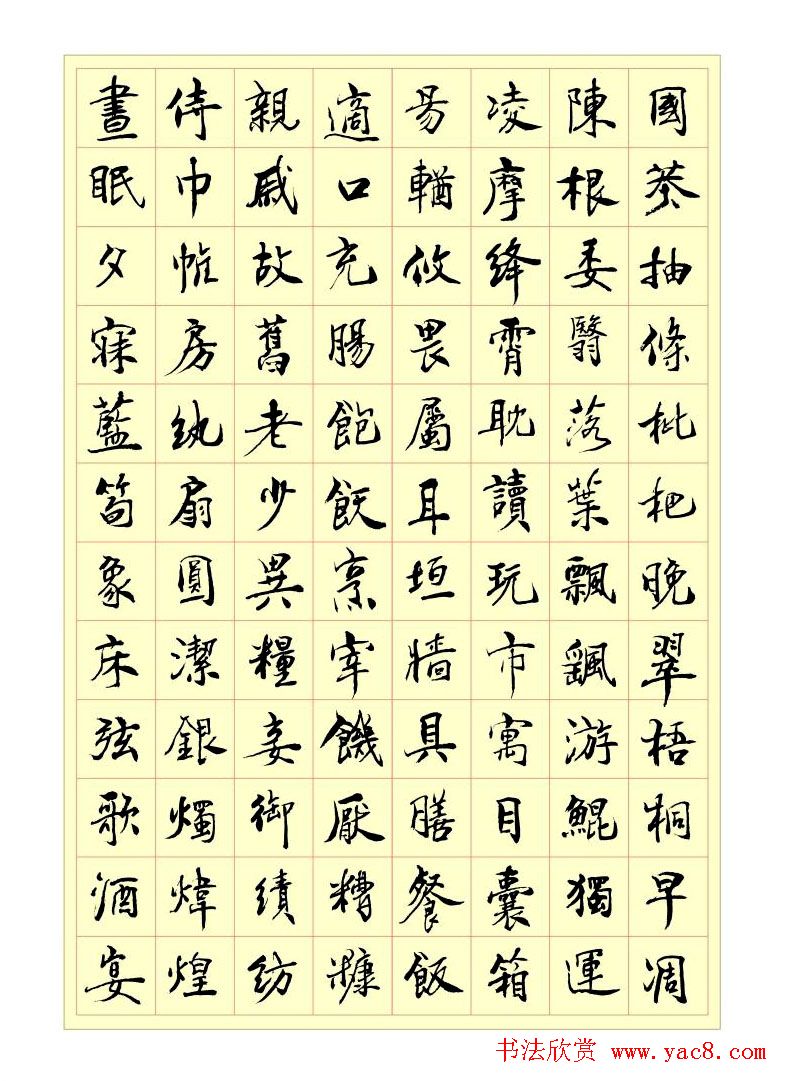 國莽抽條枇杷晚翠梧桐早凋
陳根委翳落葉飄颻游鯤獨運
凌摩絳霄耽讀玩市寓目囊箱
易輶攸畏屬耳垣牆具膳餐飯
適口充腸飽飫烹宰饑厭糟糠
親戚故舊老少異糧妾御績紡
侍巾帷房紈扇圓潔銀燭煒煌
晝眠夕寐藍筍象床弦歌酒宴
书法欣赏 www.yac8.com